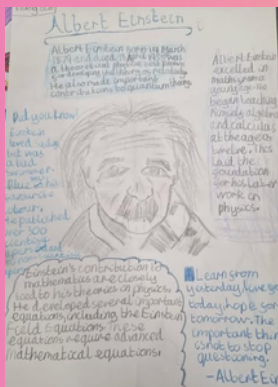 Albert Einstein
Albert Einstein born 14 March
1879 and died 18 April 1955 was
a theoretical physicist best known
for developing the theory of relativity.
He also made important
contributions to quantum theory
Albert Einstein
excelled in
maths from a
young age. He
began teaching
himself algebra
and calculus
at the age of
twelve. This
laid the
foundation
for his later
work on
physics.
Did you know
Einstein
loved sailing
but was
a bad
swimmer.
Blue
favourite
colour.
He published
over 300
scientific
papers
Einstein's contribution to
mathematics are closely
tied to his theories on physics.
He developed several important
equations, including the Einstein
Field Equations. These
equations require advanced
mathematical equations.
Learn from
yesterday, live for
today, hope for
tomorrow. The
important thing
is not to stop
questioning.
- Albert Ein